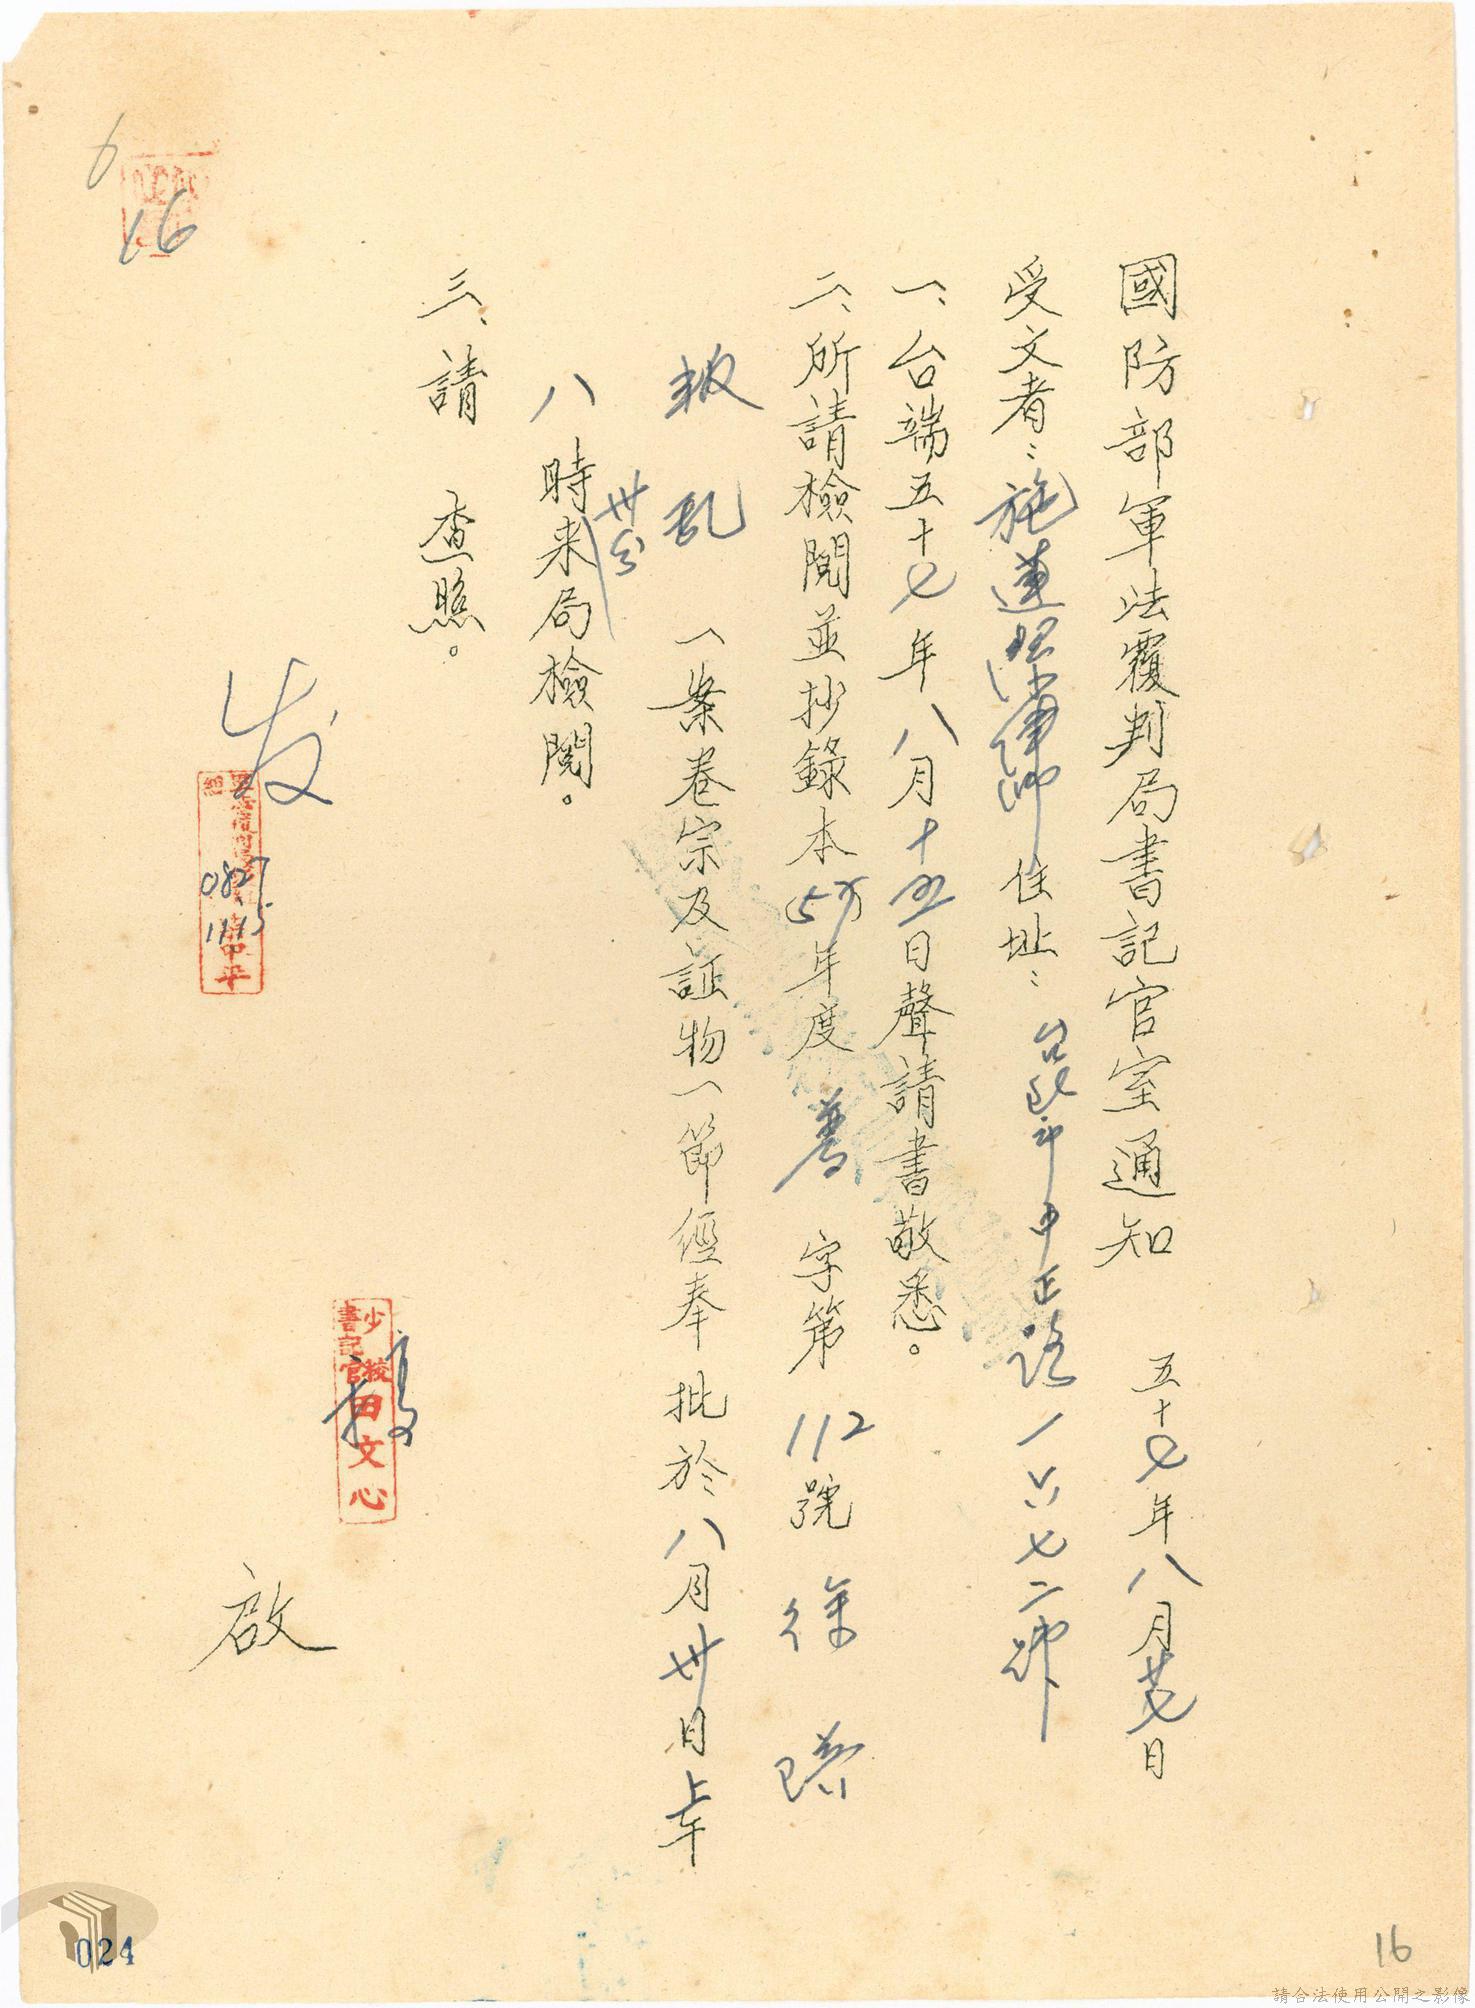 國防部軍法覆判局書記官室通知 五十七年八月廿七日
受文者：施運深律師 住址：台北市中正路一六七二號
一、台端五十七年八月十五日聲請書敬悉。
二、所請檢閱並抄錄本(57)年度 普 字第 112 號 徐
叛乱 一案卷宗及証物一節經奉批於八月卅日上午
八時卅分来局檢閱。
三、請 查照。
发
0827
1115
少校
書記官
田文心
啟
6
16
024
16
請合法使用公開之影像